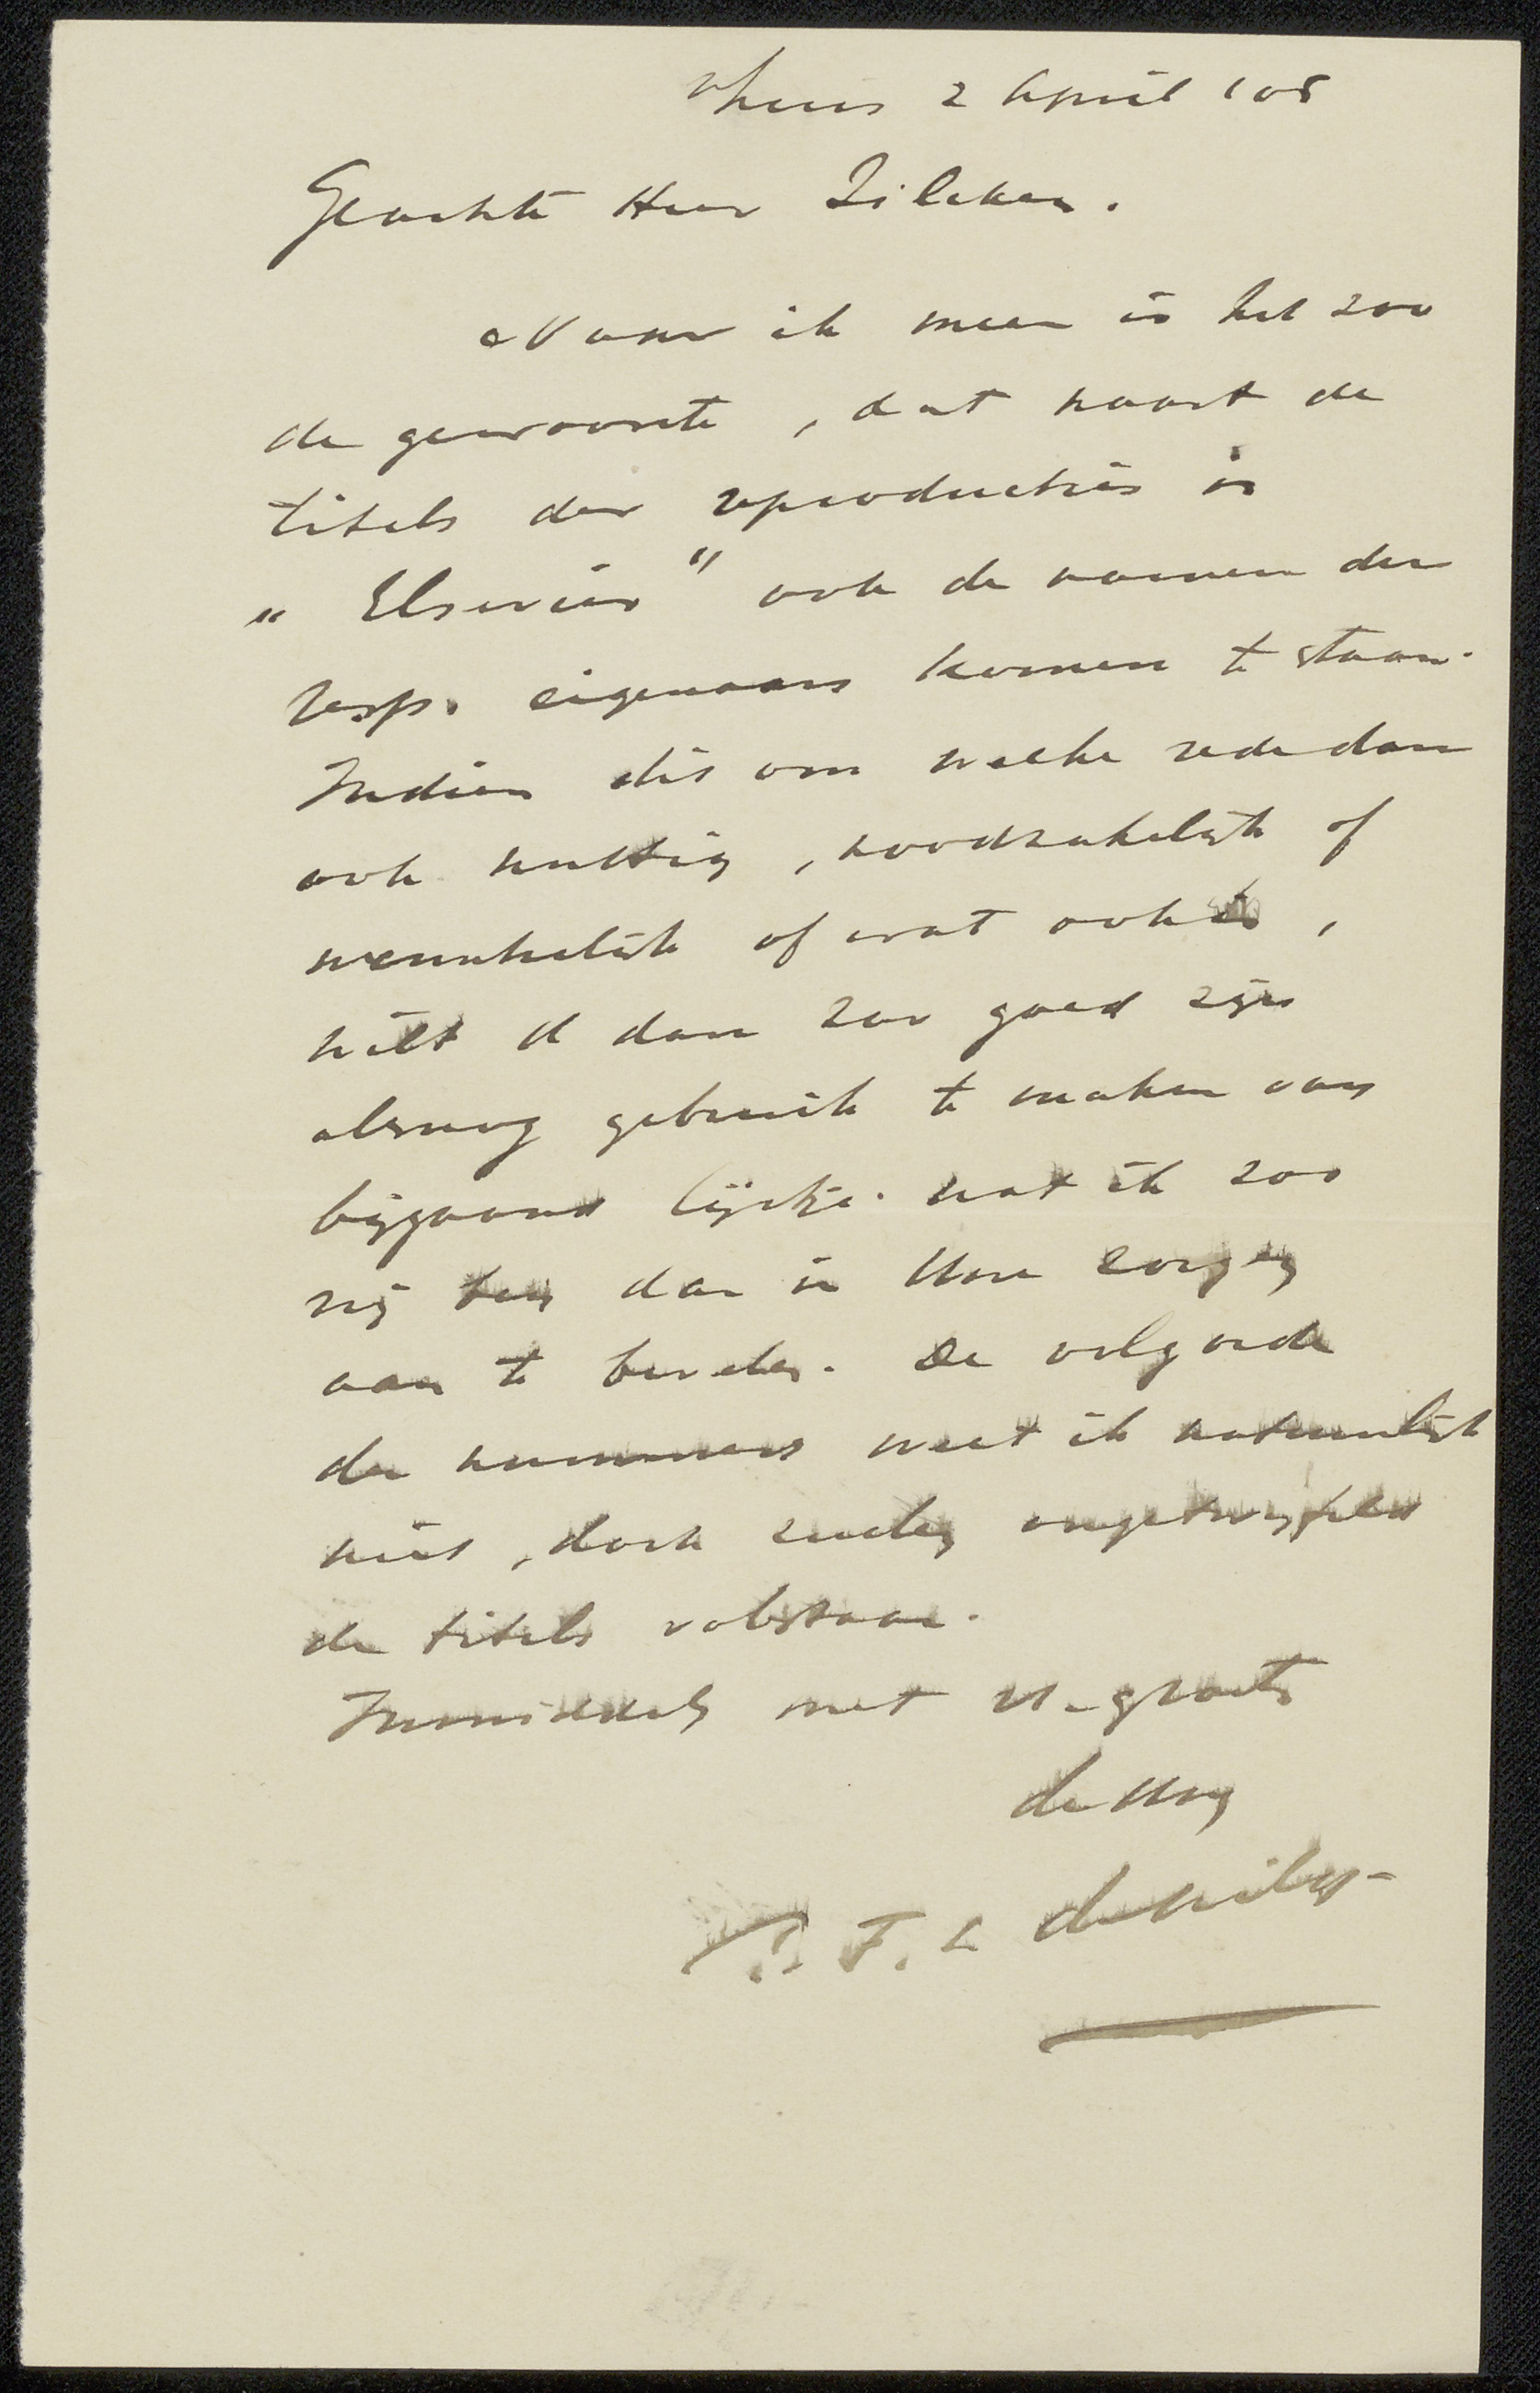 thuis 2 April '05
Geachte Heer Zilcken.
Naar ik meen is het zoo
de gewoonte, dat naast de
titels der reproducties in
„Elsevier" ook de namen der
resp. eigenaars komen te staan.
Indien dit om welke rede dan
ook nuttig, noodzakelijk of
wenschelijk of wat ook is,
wilt U dan zoo goed zijn
alsnog gebruik te maken van
bijgaand lijstje. wat ik zoo
vrij ben dan in Uwe zorgen
aan te bevelen. De volgorde
der nummers weet ik natuurlijk
niet, doch zullen ongetwijfeld
de titels volstaan.
Inmiddels met vr. groeten
de Uwe
F. L.